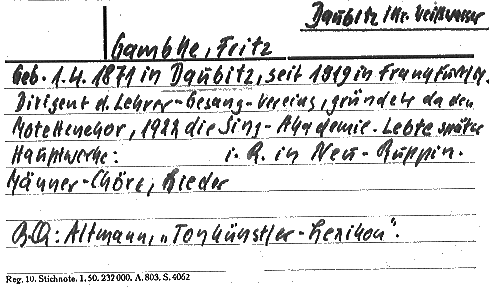 Daubitz Kr. Weißwasser
Gambke, Fritz
Geb. 1.4.1871 in Daubitz, seit 1919 in Frankfurt/O.
Dirigent d. Lehrer-Gesang-Vereins, gründete da den
Motettenchor, 1922 die Sing-Akademie. Lebte später
Hauptwerke: i. R. in Neu-Ruppin.
Männer-Chöre, Lieder
B.Q.: Altmann, „Tonkünstler-Lexikon“.
Reg. 10. Stichnote. 1. 50. 232 000. A. 803. S. 4062